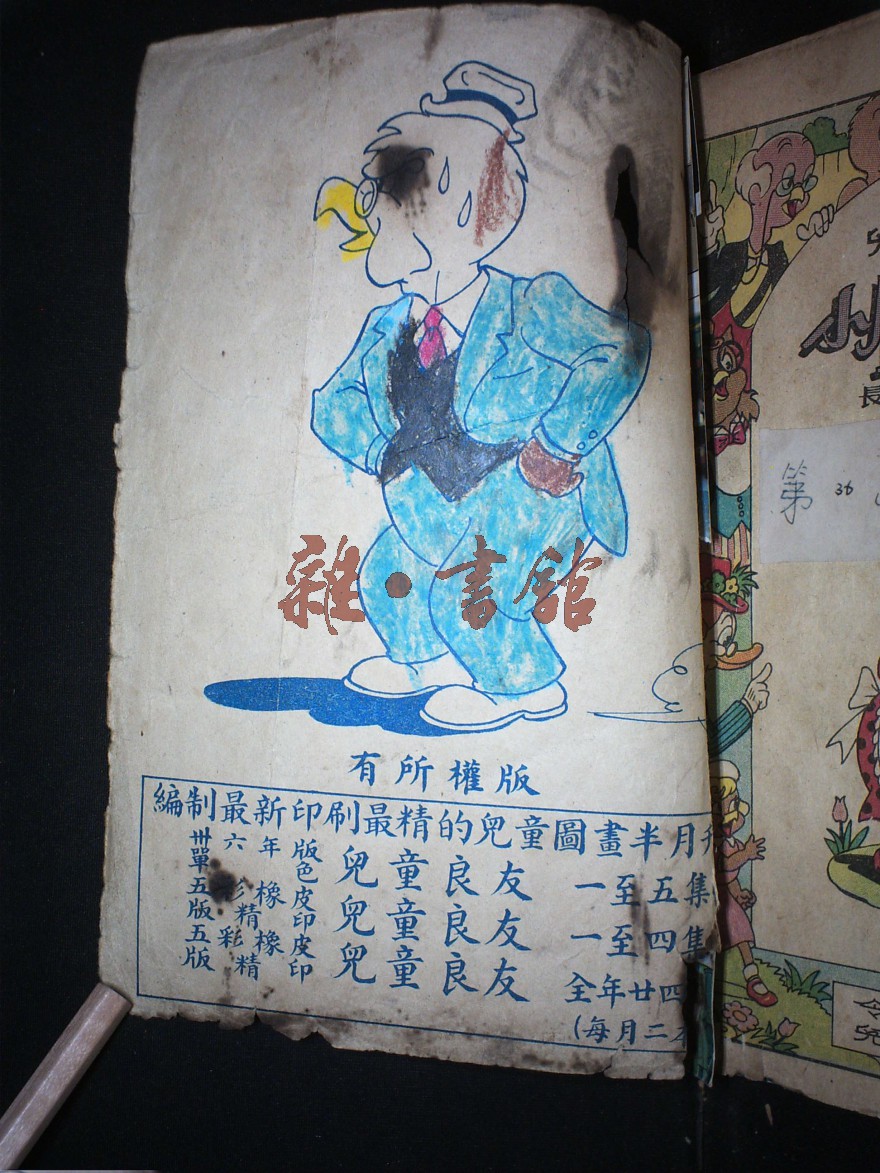 雜·書舘
版權所有
編制最新印刷最精的兒童圖畫半月
卅六年版單色 兒童良友 一至五集
五彩橡皮版精印 兒童良友 一至四集
五彩橡皮版精印 兒童良友 全年廿四
(每月二
長
第 36